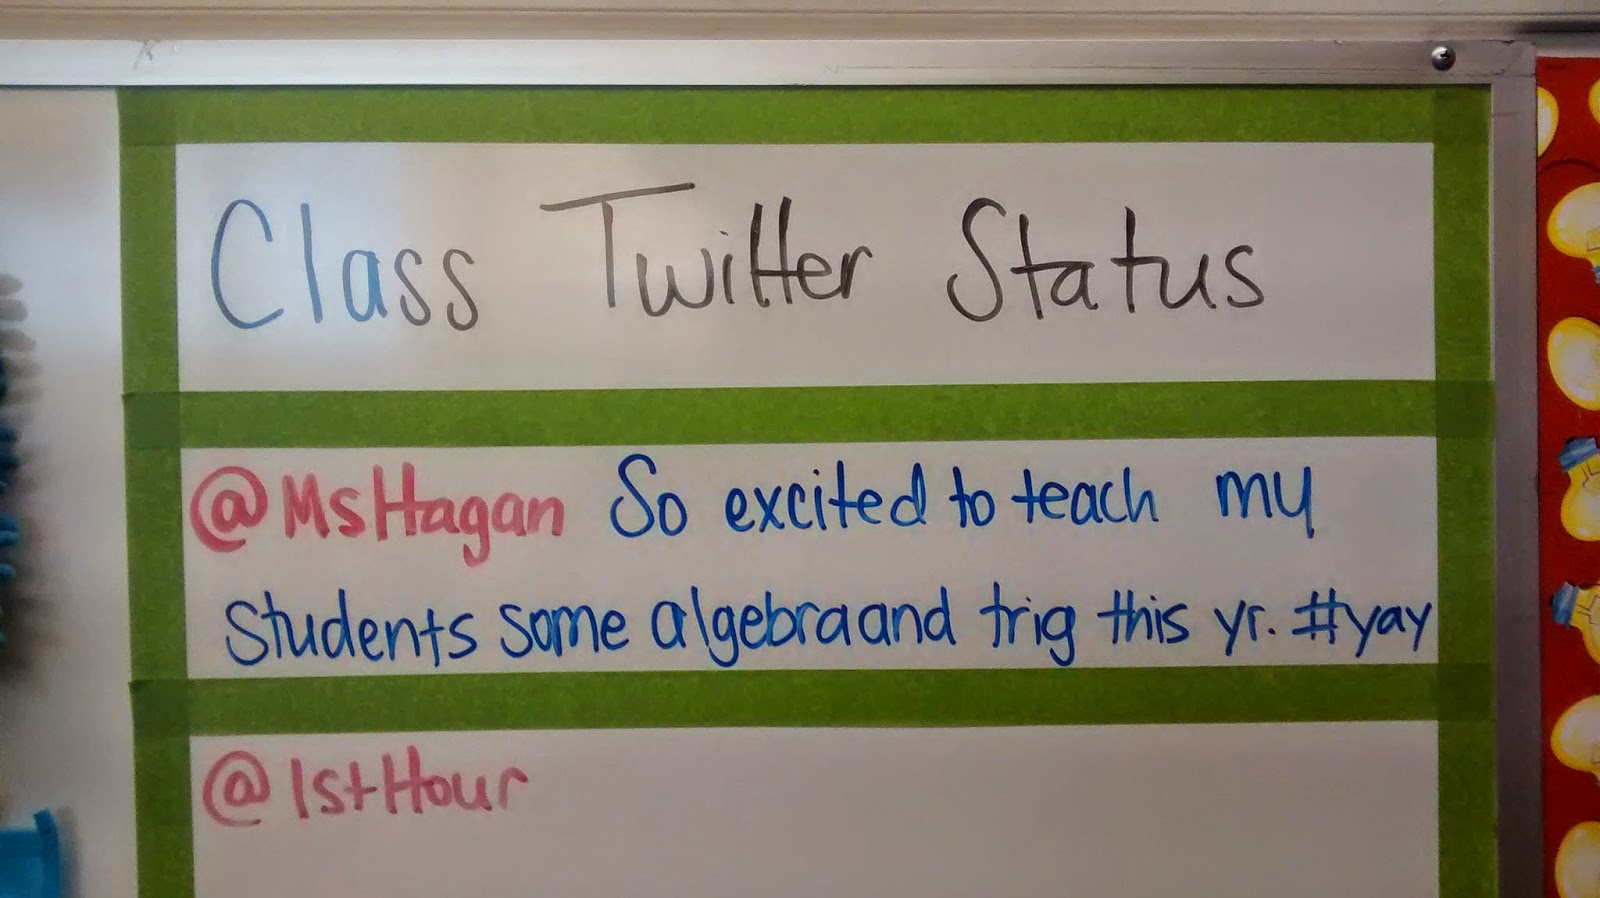 Class Twitter Status
@MsHagan So excited to teach my
students some algebra and trig this yr. #yay
@1stHour